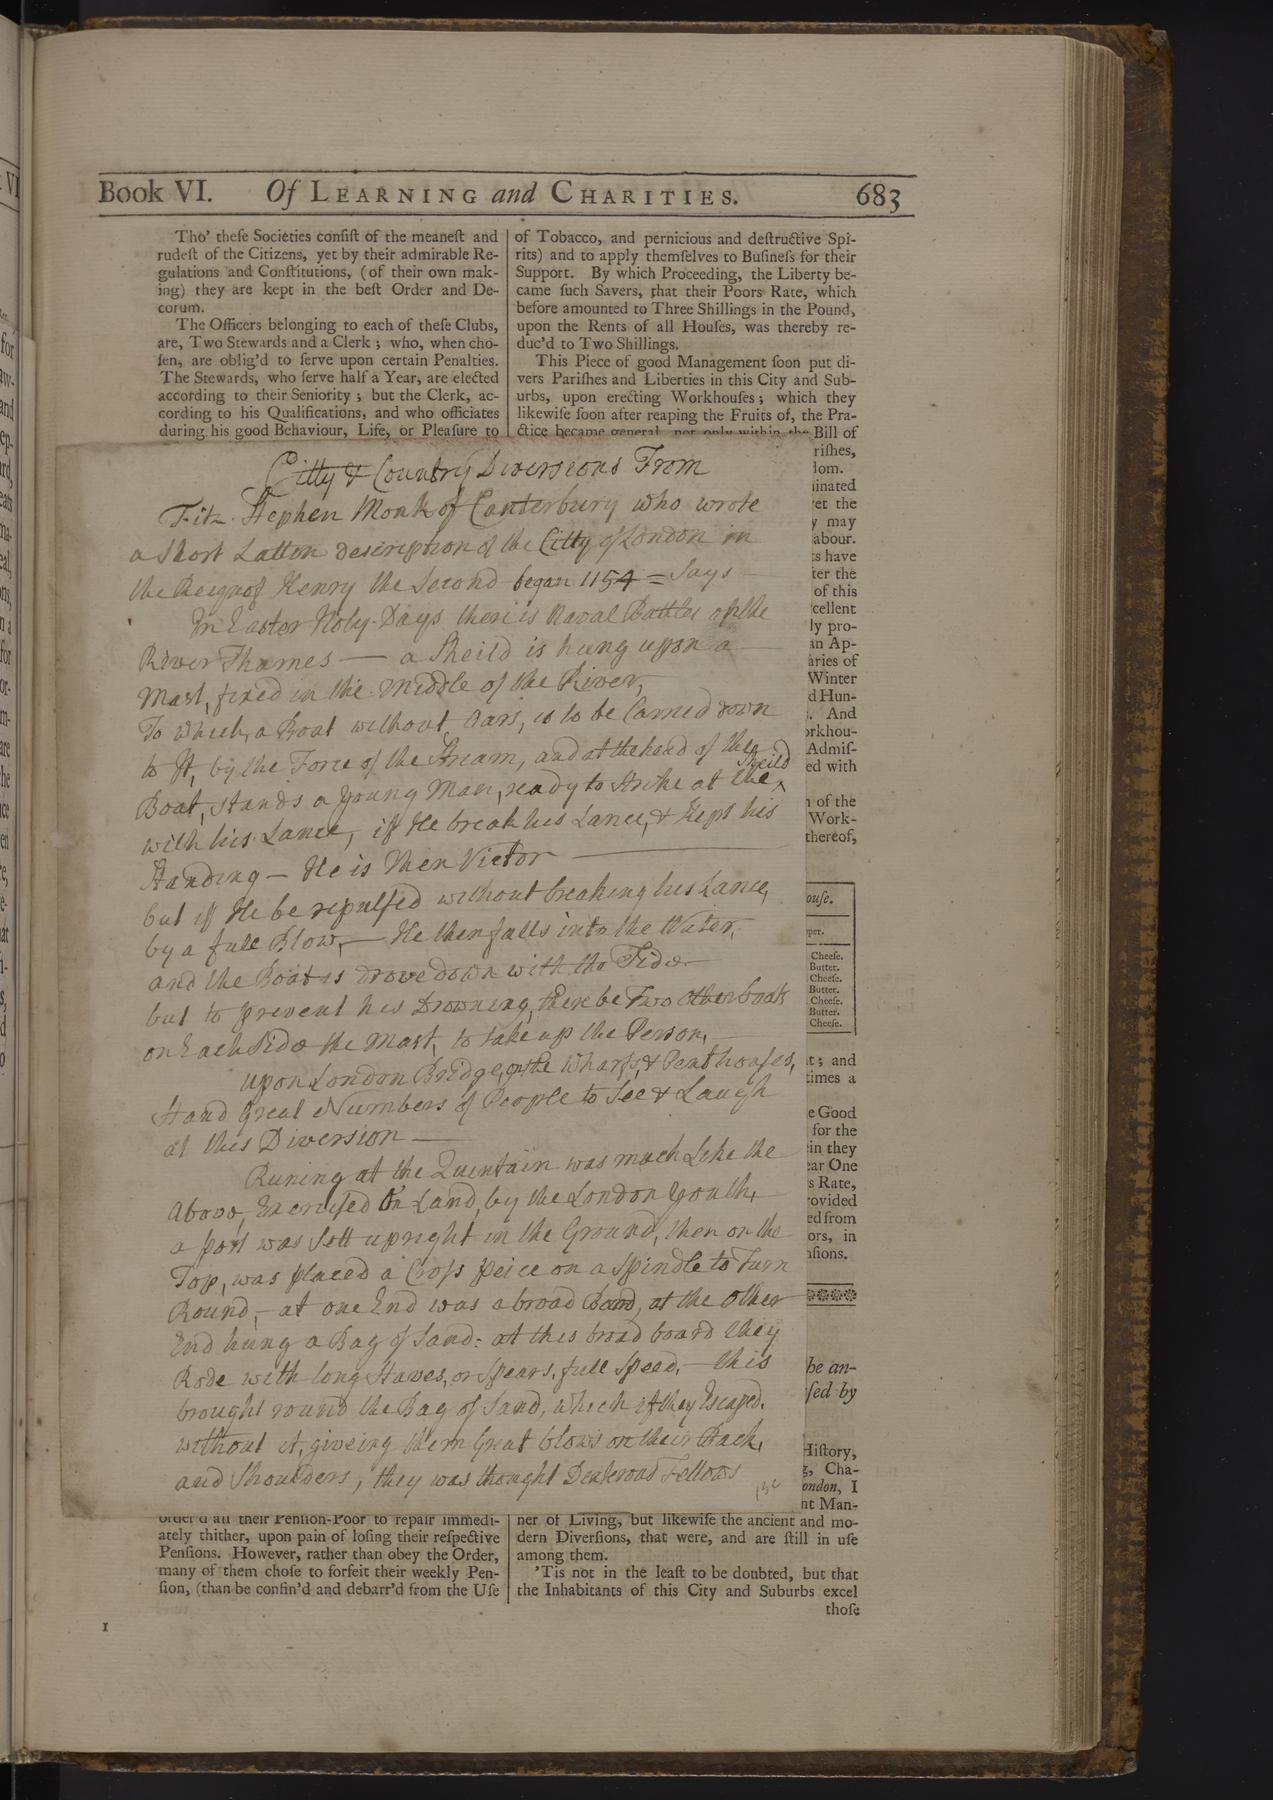 Book VI. Of LEARNING and CHARITIES. 683
Tho' theſe Societies conſiſt of the meaneſt and
rudeſt of the Citizens, yet by their admirable Re-
gulations and Conſtitutions, (of their own mak-
ing) they are kept in the beſt Order and De-
corum.
The Officers belonging to each of theſe Clubs,
are, Two Stewards and a Clerk; who, when cho-
ſen, are oblig'd to ſerve upon certain Penalties.
The Stewards, who ſerve half a Year, are elected
according to their Seniority; but the Clerk, ac-
cording to his Qualifications, and who officiates
during his good Behaviour, Life, or Pleaſure to
of Tobacco, and pernicious and deſtructive Spi-
rits) and to apply themſelves to Buſineſs for their
Support. By which Proceeding, the Liberty be-
came ſuch Savers, that their Poors Rate, which
before amounted to Three Shillings in the Pound,
upon the Rents of all Houſes, was thereby re-
duc'd to Two Shillings.
This Piece of good Management ſoon put di-
vers Pariſhes and Liberties in this City and Sub-
urbs, upon erecting Workhouſes; which they
likewiſe ſoon after reaping the Fruits of, the Pra-
ctice became general, not only within the Bill of
riſhes,
dom.
inated
yet the
y may
abour.
ts have
ter the
of this
cellent
ly pro-
an Ap-
aries of
Winter
d Hun-
. And
orkhou-
Admiſ-
ed with
n of the
Work-
thereof,
ouſe.
per.
Cheeſe.
Butter.
Cheeſe.
Butter.
Cheeſe.
Butter.
Cheeſe.
t; and
times a
e Good
for the
ein they
ear One
s Rate,
rovided
ed from
ors, in
nſions.
he an-
ſed by
Hiſtory,
g, Cha-
ondon, I
nt Man-
Citty & Country Diversions From
Fitz. Stephen Monk of Canterbury who wrote
a Short Latten description of the Citty of London in
the Reign of Henry the Second began 1154 = Says
In Easter Holy-Days there is Naval Battles on the
River Thames — a Sheild is hung upon a
Mast, fixed in the Middle of the River,
To which, a Boat without Oars, is to be Carried down
to It, by the Force of the Stream, and at the head of the
Boat, stands a young Man, ready to Strike at the Sheild
with his Lance, if He break his Lance, & Keps his
Standing — He is then Victor
but if He be repulſed without breaking his Lance,
by a full Blow, — He then falls into the Water,
and the Boat is drove down with the Tide —
but to prevent his Drowning, there be Two other boats
on Each Side the Mast, to take up the Person,
upon London Bridge, on the Wharfs, & Penthouſes,
Stand Great Numbers of People to See & Laugh
at this Diversion —
Runing at the Quintain was much Like the
Above, Exerciſed On Land, by the London Youth,
a post was Sett upright in the Ground, then on the
Top, was placed a Croſs peice on a Spindle to Turn
Round, — at one End was a broad Board, at the Other
End hung a Bag of Sand: at this broad board they
Rode with long Staves, or Spears, full Speed, — this
brought round the Bag of Sand, which if they Escaped,
without it, giveing them Great blows on their Back,
and Shoulders, they was thought Dexterous Fellows
order'd all their Penſion-Poor to repair immedi-
ately thither, upon pain of loſing their reſpective
Penſions. However, rather than obey the Order,
many of them choſe to forfeit their weekly Pen-
ſion, (than be confin'd and debarr'd from the Uſe
ner of Living, but likewiſe the ancient and mo-
dern Diverſions, that were, and are ſtill in uſe
among them.
'Tis not in the leaſt to be doubted, but that
the Inhabitants of this City and Suburbs excel
thoſe
1